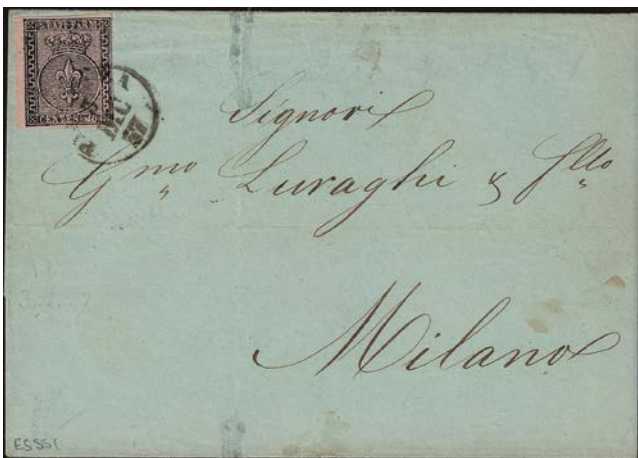 STATI PARM
CENTES
Signori
Gmo Luraghi & fllo
Milano
ESSS1